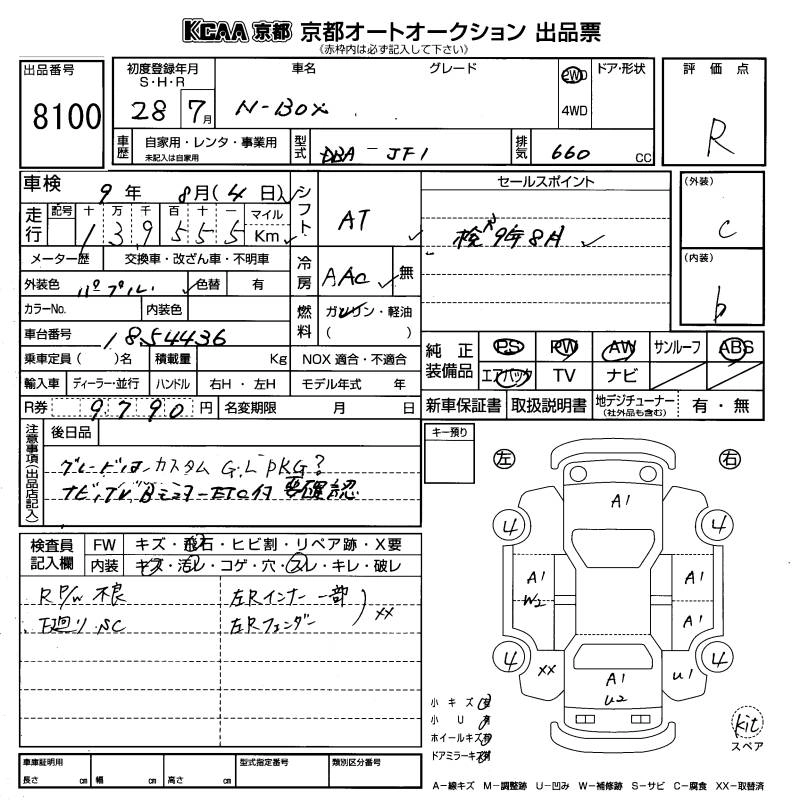 KCAA 京都 京都オートオークション 出品票
《赤枠内は必ず記入して下さい》
出品番号
8100
初度登録年月
S・H・R
28 7月
車名
N-BOX
グレード
2WD
4WD
ドア・形状
評価点
R
車歴
自家用・レンタ・事業用
未記入は自家用
型式
DBA-JF1
排気
660 cc
車検
9年 8月(4日)
走行
記号 十 万 千 百 十 一
139555
マイル
Km
メーター歴 交換車・改ざん車・不明車
外装色 パープル 色替 有
カラーNo. 内装色
車台番号 1854436
乗車定員( )名 積載量 Kg
輸入車 ディーラー・並行 ハンドル 右H・左H
R券 9790円 名変期限 月 日
シフト
AT
冷房
AAC 無
燃料
ガソリン・軽油
( )
NOX 適合・不適合
モデル年式 年
セールスポイント
検R9年8月
(外装)
C
(内装)
b
純正装備品
PS PW AW サンルーフ ABS
エアバック TV ナビ
新車保証書 取扱説明書 地デジチューナー
(社外品も含む)
有・無
注意事項(出品店記入)
後日品
グレードはカスタム G.L PKG?
ナビ,TV,Bミラー ETC付 要確認
キー預り
左
右
検査員記入欄
FW キズ・飛石・ヒビ割・リペア跡・X要
内装 キズ・汚レ・コゲ・穴・スレ・キレ・破レ
R P/W 不良
下廻り SC
左Rインナー 一部
左Rフェンダー
XX
A1
4
4
A1
W2
A1
A1
4
4
XX
A1
U2
U1
小キズ
小U
ホイールキズ
ドアミラーキズ
kit
スペア
車庫証明用
長さ cm 幅 cm 高さ cm
型式指定番号
類別区分番号
A-線キズ M-調整跡 U-凹み W-補修跡 S-サビ C-腐食 XX-取替済